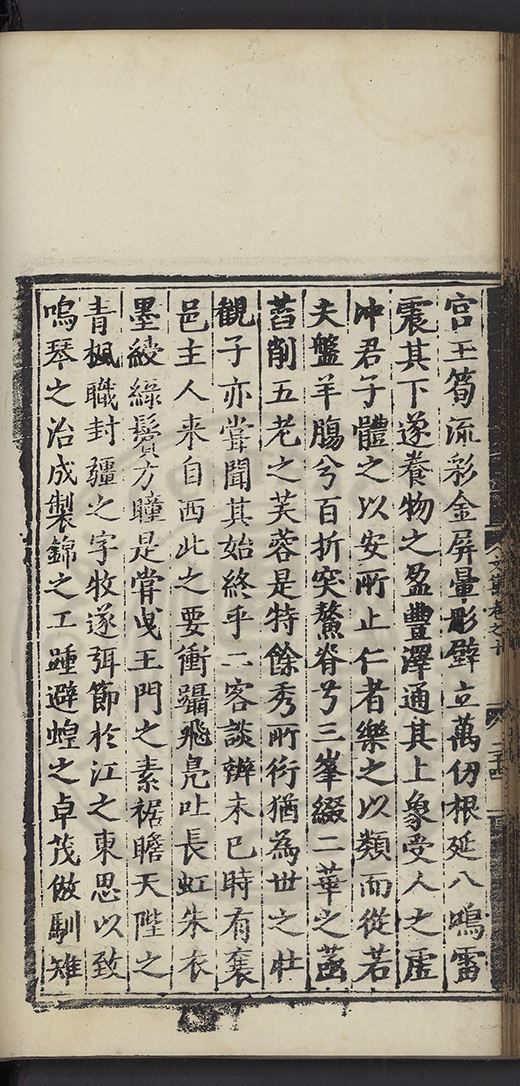 宮玉筍流彩金屏量彫壁立萬仞根延八鳴雷
震其下遂養物之盈豐澤通其上象受人之虛
冲君子體之以安所止仁者樂之以類而從若
夫盤羊膓兮百折突鰲脊兮三峯綴二華之菡
萏削五老之芙蓉是特餘秀所衍猶為世之壯
觀子亦甞聞其始終乎二客談辨未已時有褒
邑主人来自西此之要衝躡飛鳬吐長虹朱衣
墨綬綠鬢方瞳是甞曵王門之素裾瞻天陛之
青楓職封疆之字牧遂弭節於江之東思以致
鳴琴之治成製錦之工踵避蝗之卓茂倣馴雉
文叢卷之